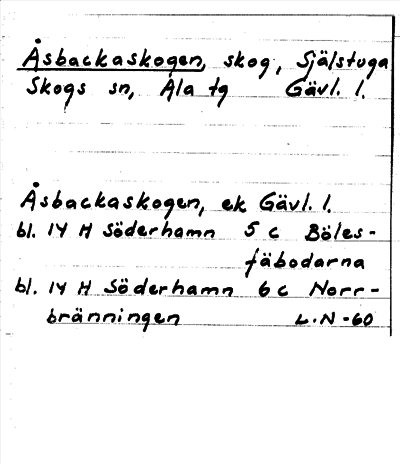 Åsbackaskogen, skog, Själstuga
Skogs sn, Ala tg Gävl. l.
Åsbackaskogen, ek Gävl. l.
bl. 14 H Söderhamn 5 c Böles-
fäbodarna
bl. 14 H Söderhamn 6 c Norr-
bränningen L.N-60